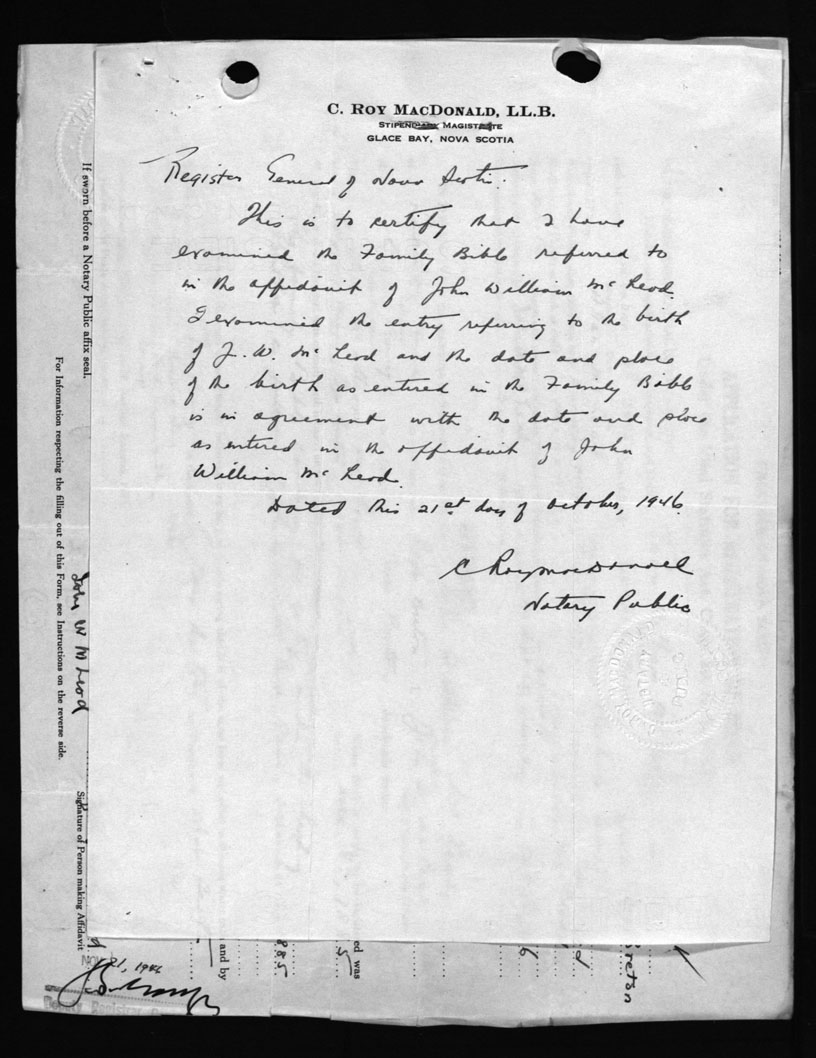 C. ROY MACDONALD, LL.B.
STIPENDIARY MAGISTRATE
GLACE BAY, NOVA SCOTIA
Register General of Nova Scotia:
This is to certify that I have
examined the Family Bible referred to
in the affidavit of John William McLeod.
I examined the entry referring to the birth
of J. W. McLeod and the date and place
of the birth as entered in the Family Bible
is in agreement with the date and place
as entered in the affidavit of John
William McLeod.
Dated this 21st day of October, 1946.
C Roy MacDonald
Notary Public
If sworn before a Notary Public affix seal.
For Information respecting the filling out of this Form, see Instructions on the reverse side.
John W McLeod
Signature of Person making Affidavit
NOV 21, 1946
Deputy Registrar
and by
885
ed was
5
6
d
Breton